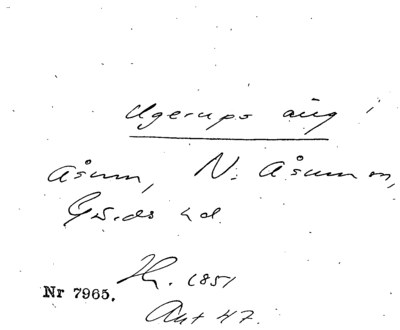 Ugerups äng
Åsum, N. Åsum sn,
Gärds hd
Hr. 1851
Nr 7965.
Akt 47.